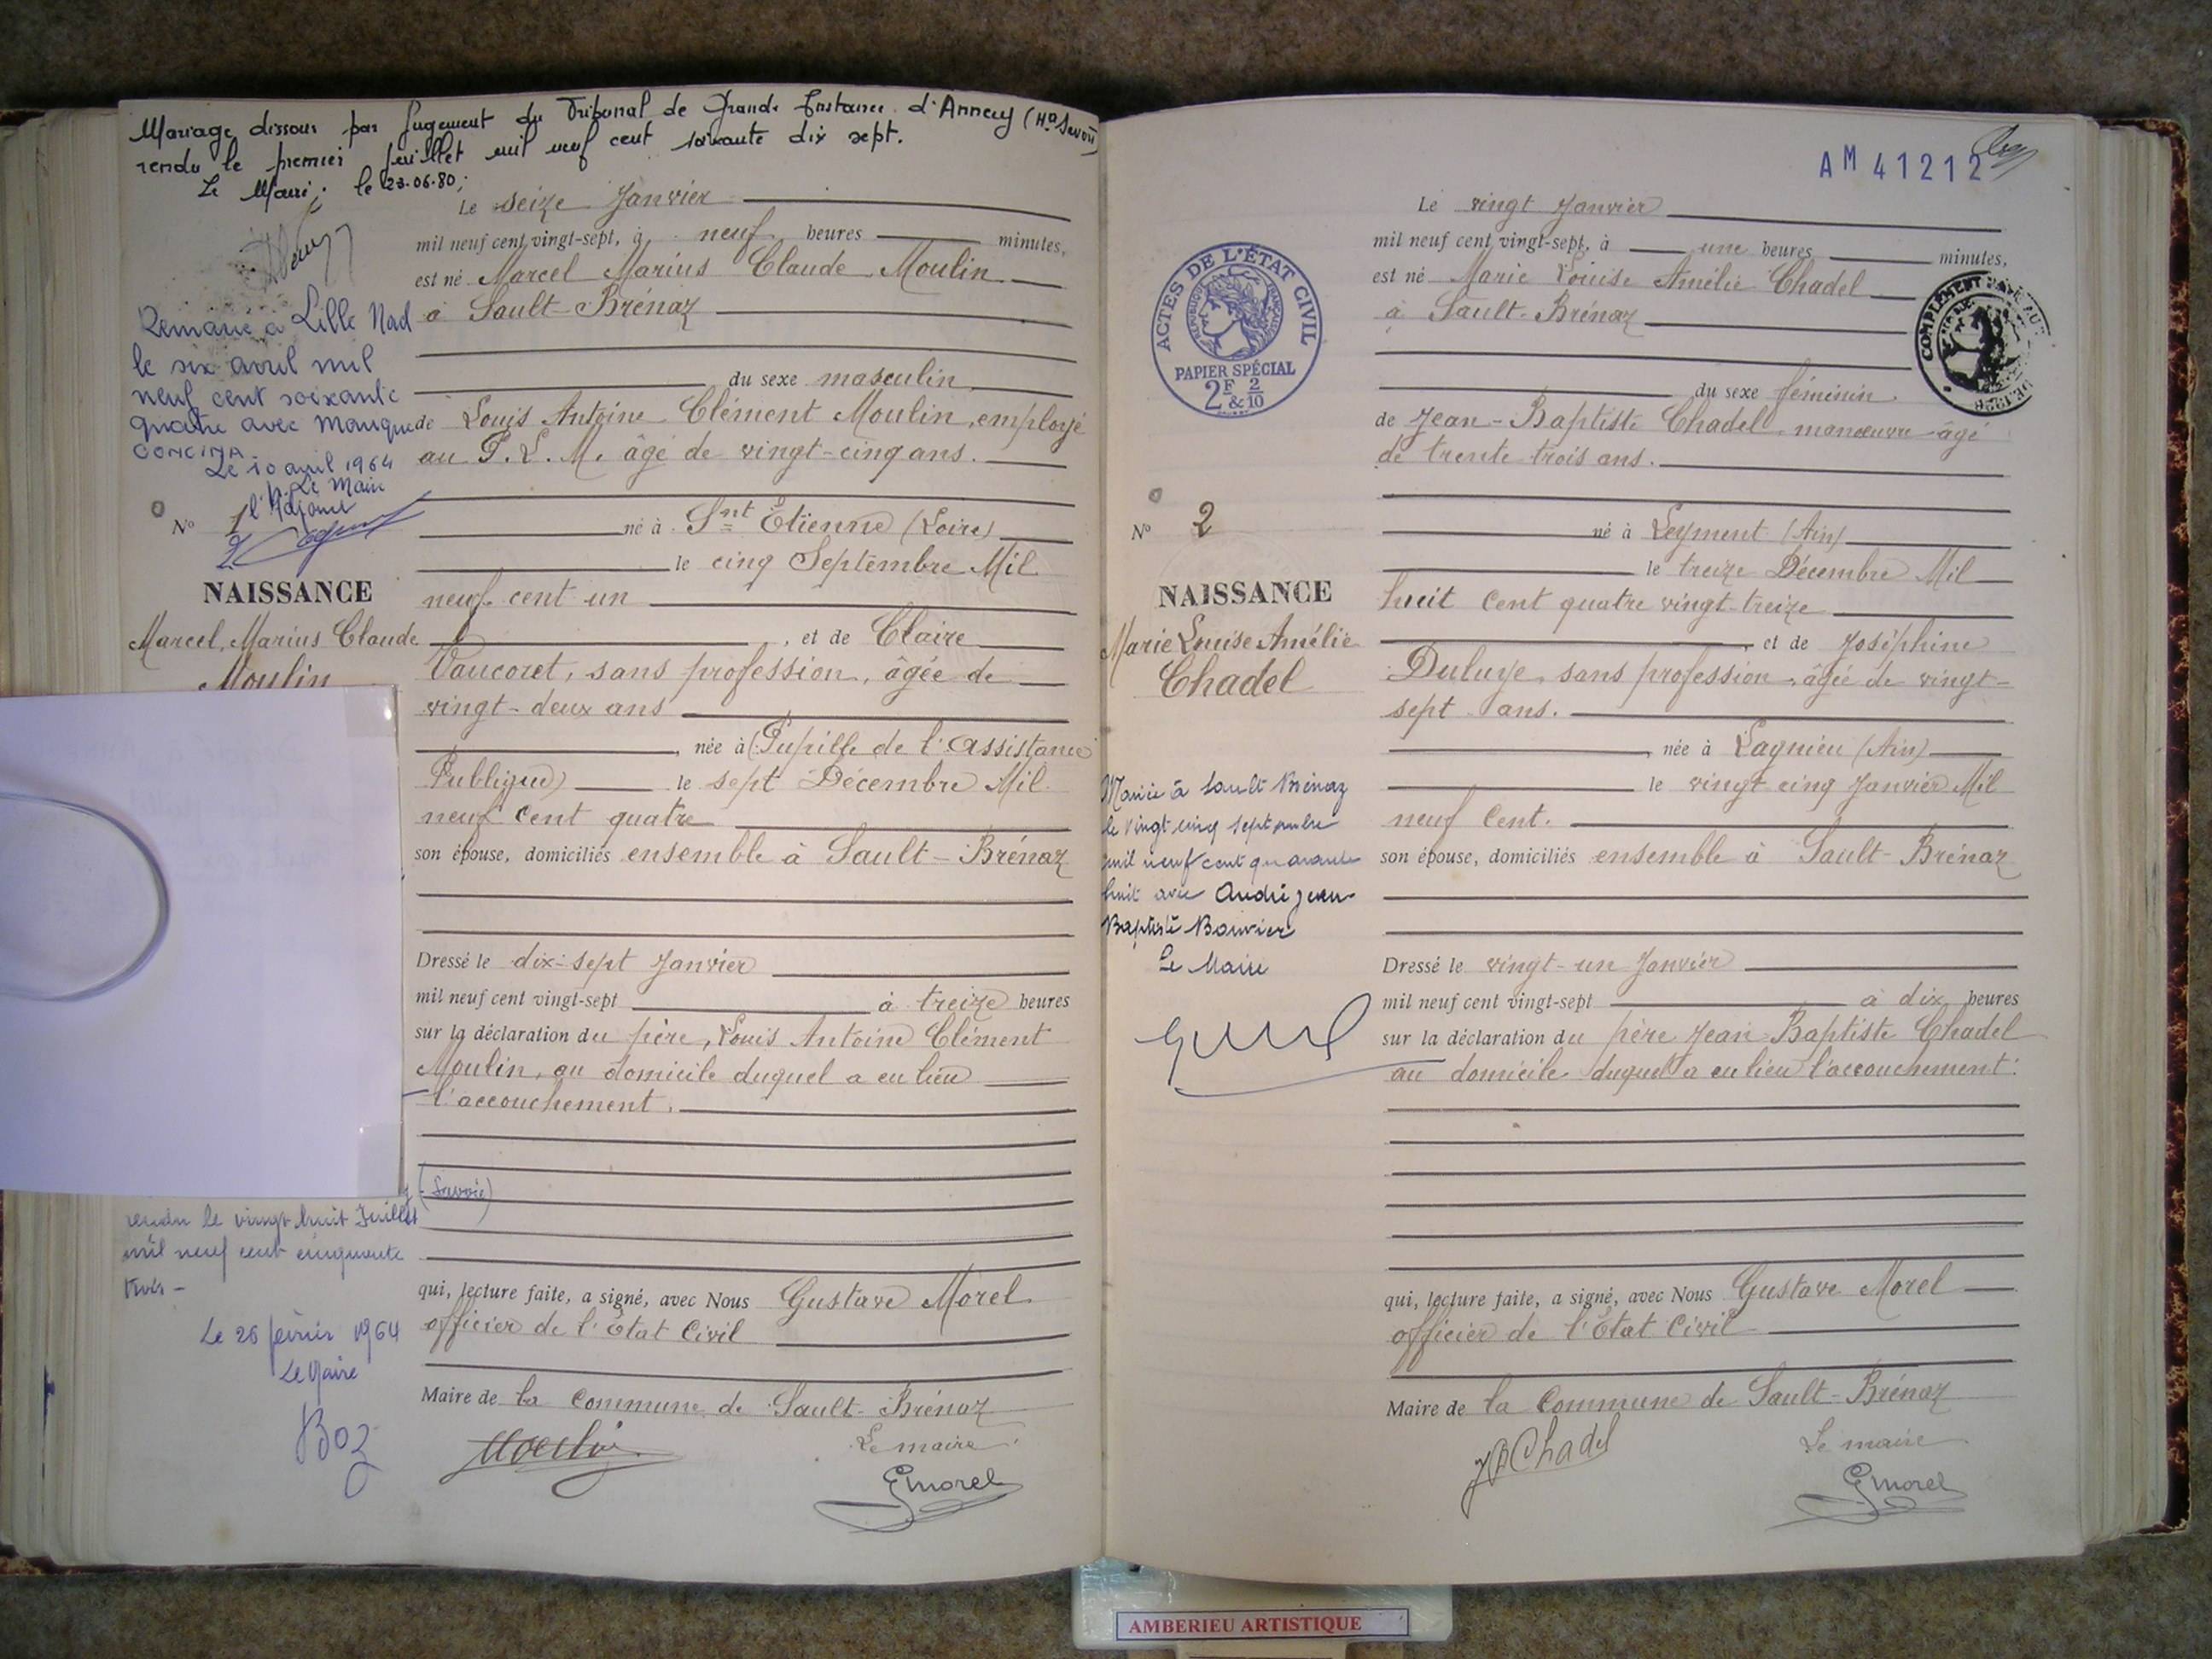 Mariage dissous par Jugement du Tribunal de Grande Instance d'Annecy (Hte Savoie)
rendu le premier juillet mil neuf cent soixante dix sept.
Le Maire; le 23.06.80;
Remarié à Lille Nord
le six avril mil
neuf cent soixante
quatre avec
Le 10 avril 1964
p. Le Maire
l'Adjoint
N° 1
NAISSANCE
Marcel, Marius Claude
Moulin
(Savoie)
rendu le vingt huit Juillet
mil neuf cent cinquante
trois -
Le 26 février 1964
Le Maire
Boz
Le seize Janvier
mil neuf cent vingt-sept, à neuf heures minutes,
est né Marcel Marius Claude Moulin
à Sault-Brénaz
du sexe masculin
de Louis Antoine Clément Moulin, employé
au P. L. M. âgé de vingt-cinq ans.
né à Snt Etienne (Loire)
le cinq Septembre Mil
neuf cent un
, et de Claire
Vaucoret, sans profession, âgée de
vingt-deux ans
, née à (Pupille de l'Assistance
Publique) le sept Décembre Mil
neuf cent quatre
son épouse, domiciliés ensemble à Sault-Brénaz
Dressé le dix-sept Janvier
mil neuf cent vingt-sept à treize heures
sur la déclaration du père, Louis Antoine Clément
Moulin, au domicile duquel a eu lieu
l'accouchement.
qui, lecture faite, a signé, avec Nous Gustave Morel
officier de l'Etat Civil
Maire de la Commune de Sault-Brénaz
Moulin
Le maire
G Morel
AM 41212
ACTES DE L'ÉTAT CIVIL
RÉPUBLIQUE FRANÇAISE
PAPIER SPÉCIAL
2F & 2/10
COMPLÉMENT
N° 2
NAISSANCE
Marie Louise Amélie
Chadel
Mariée à Sault Brénaz
le vingt cinq septembre
mil neuf cent quarante
huit avec André Jean
Baptiste Bouvier
Le Maire
Le vingt Janvier
mil neuf cent vingt-sept, à une heures minutes,
est né Marie Louise Amélie Chadel
à Sault-Brénaz
du sexe féminin
de Jean-Baptiste Chadel manœuvre âgé
de trente trois ans.
né à Leyment (Ain)
le treize Décembre Mil
huit cent quatre vingt-treize
, et de Joséphine
Duluye, sans profession, âgée de vingt-
sept ans.
, née à Lagnieu (Ain)
le vingt cinq Janvier Mil
neuf cent.
son épouse, domiciliés ensemble à Sault-Brénaz
Dressé le vingt-un Janvier
mil neuf cent vingt-sept à dix heures
sur la déclaration du père Jean-Baptiste Chadel
au domicile duquel a eu lieu l'accouchement.
qui, lecture faite, a signé, avec Nous Gustave Morel
officier de l'Etat Civil
Maire de la Commune de Sault-Brénaz
JB Chadel
Le maire
G Morel
AMBERIEU ARTISTIQUE